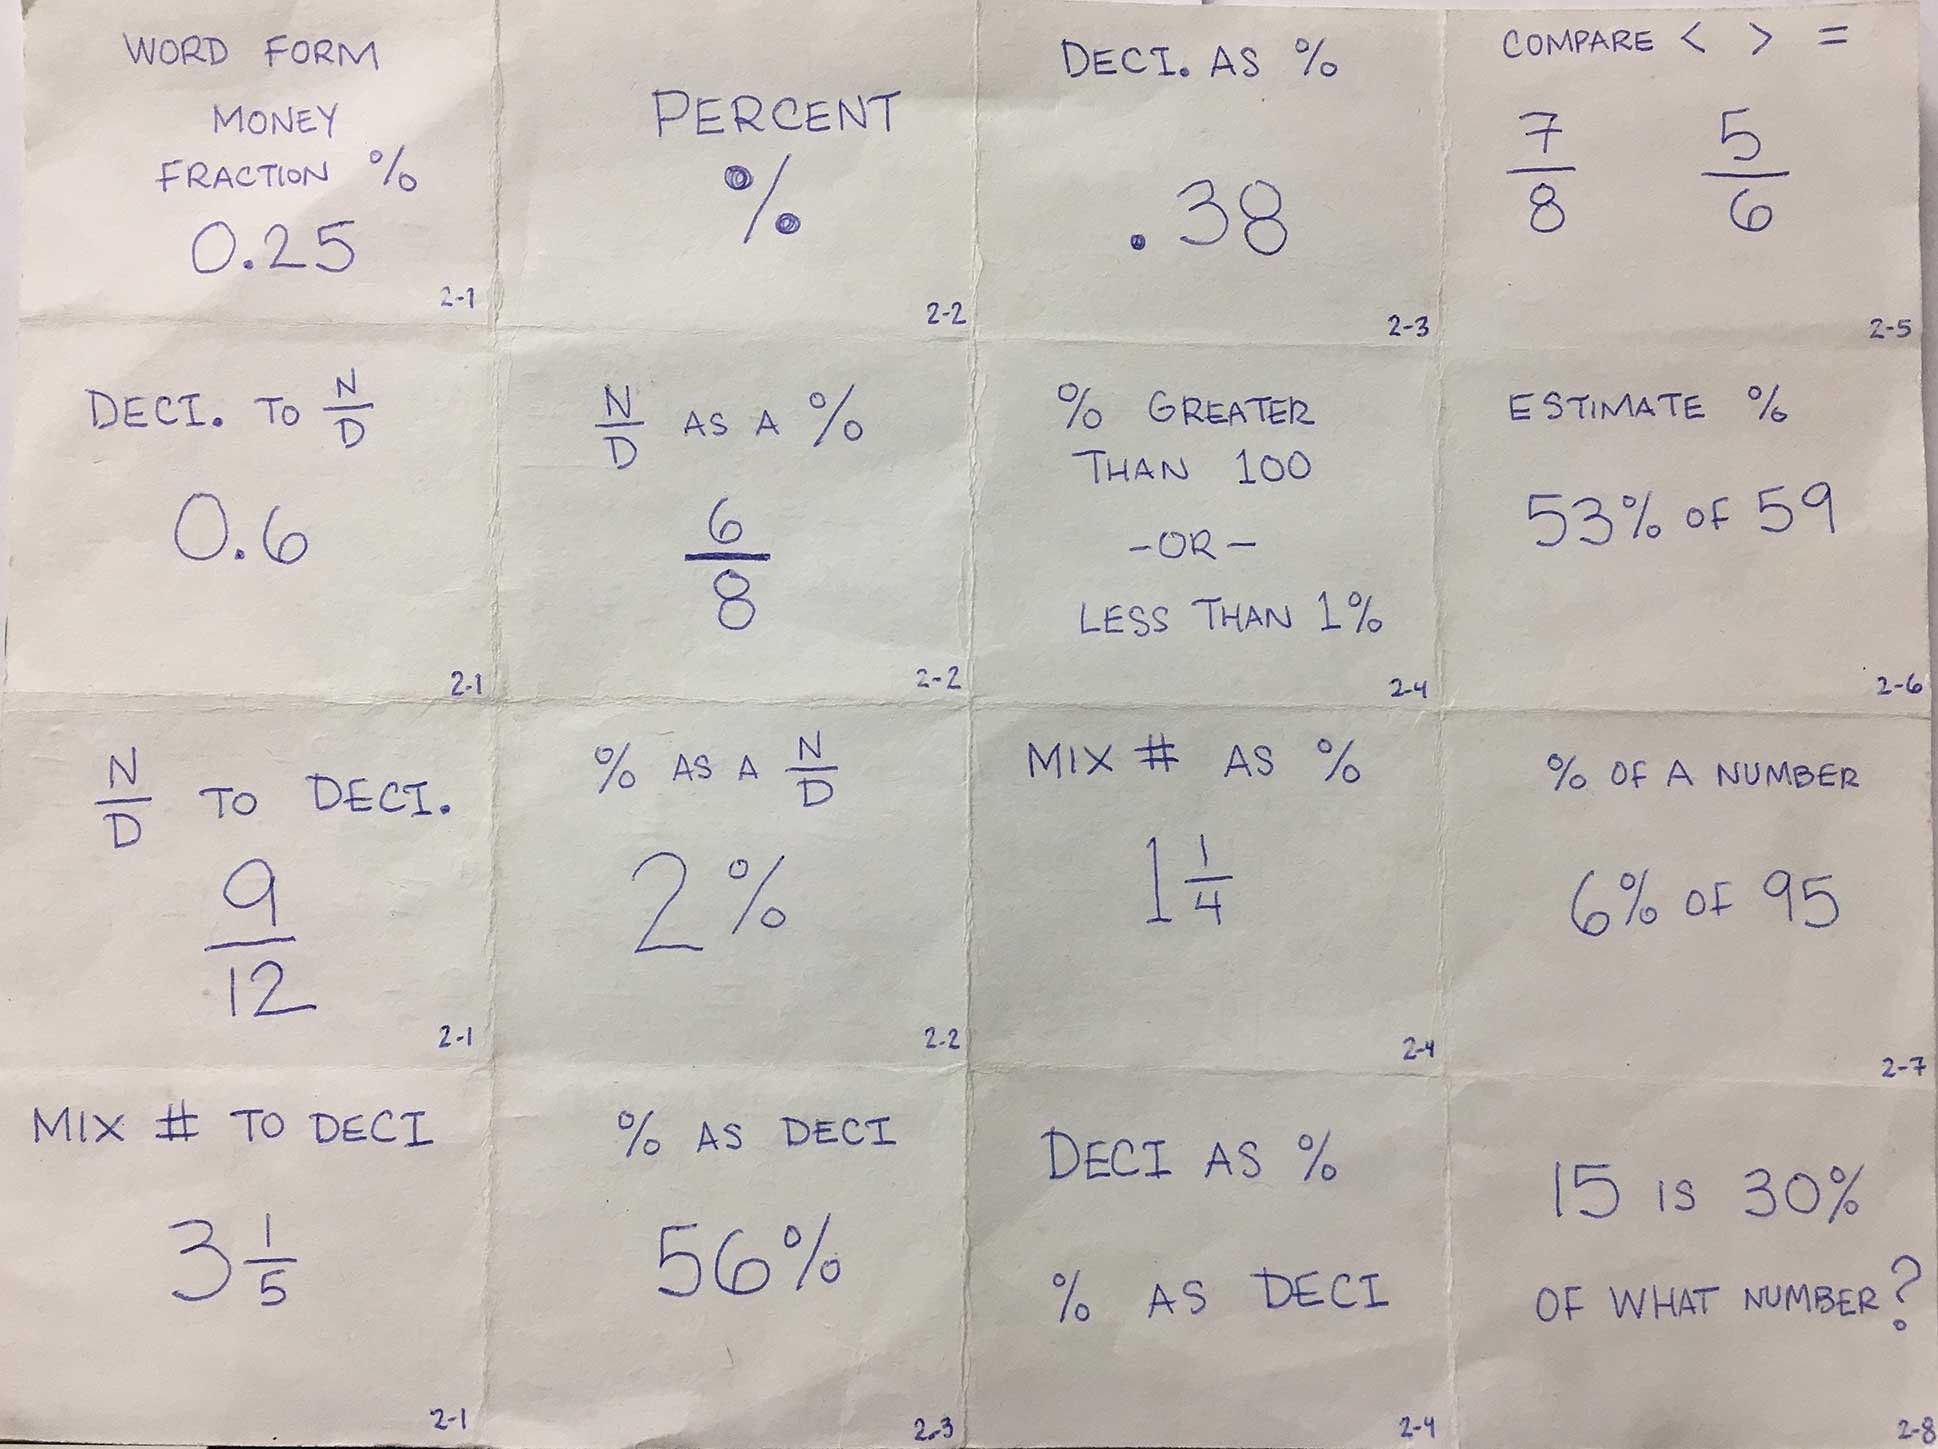 WORD FORM
MONEY
FRACTION %
0.25
2-1
PERCENT
%
2-2
DECI. AS %
.38
2-3
COMPARE < > =
7/8 5/6
2-5
DECI. TO N/D
0.6
2-1
N/D AS A %
6/8
2-2
% GREATER
THAN 100
-OR-
LESS THAN 1%
2-4
ESTIMATE %
53% OF 59
2-6
N/D TO DECI.
9/12
2-1
% AS A N/D
2%
2-2
MIX # AS %
1 1/4
2-4
% OF A NUMBER
6% OF 95
2-7
MIX # TO DECI
3 1/5
2-1
% AS DECI
56%
2-3
DECI AS %
% AS DECI
2-4
15 IS 30%
OF WHAT NUMBER?
2-8